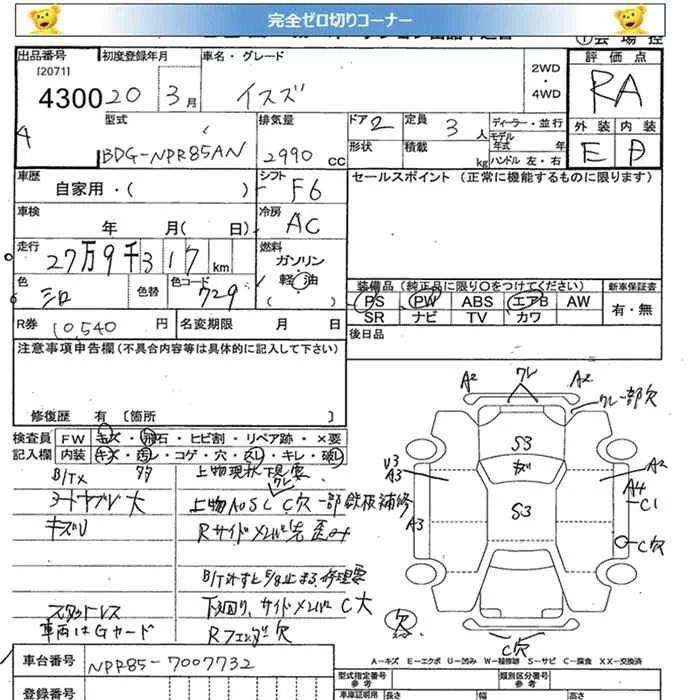 完全ゼロ切りコーナー
出品番号 [2071] 初度登録年月 車名・グレード 2WD ・ 4WD 評価点
4300 20 3月 イスズ RA
型式 排気量 ドア 2 定員 3人 ディーラー・並行 外装 内装
BDG-NPR85AN 2990 cc 形状 積載 kg モデル年式 年 ハンドル 左・右 E D
車歴 シフト F6 セールスポイント (正常に機能するものに限ります)
自家用・( )
車検 年 月( 日) 冷房 AC
走行 27万9千317 km 燃料 ガソリン 軽・油 ( )
色 シロ 色替 色コード 729
装備品 (純正品に限り○をつけてください) 新車保証書
PS PW ABS エアB AW 有・無
SR ナビ TV カワ
R券 10,540 円 名変期限 月 日 後日品
注意事項申告欄(不具合内容等は具体的に記入して下さい)
修復歴 有 〔箇所 〕
検査員 FW キズ・飛石・ヒビ割・リペア跡・×要
記入欄 内装 キズ・汚レ・コゲ・穴・スレ・キレ・破レ
B/TX 上物現状下見要
シートヤブレ大 上物AUSC C穴 一部鉄板補修
クレ
キズU Rサイドメンバ先歪み
B/T外すと5/8止まる、修理要
スタットレス 下回り、サイドメンバ C大
車両はGカード Rフェンダ欠
A2 クレ A2
クレ一部欠
S3
U3 A3 A2
S3 A4 C1
A3
C穴
欠
C穴
A-キズ E-エクボ U-凹み W-補修跡 S-サビ C-腐食 XX-交換済
車台番号 NPR85-7007732 型式指定番号 参考 類別区分番号 参考
登録番号 車庫証明用 長さ 幅 高さ